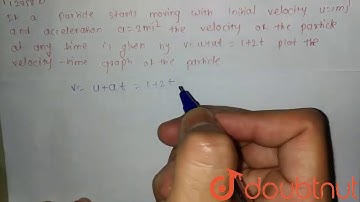 If a Particle starts moving with initial velocity u=1ms
and acceleration a=2ms² the velocity of the particle
at any time is given by v= u+at = 1+2t plot the
velocity-time graph of the particle
v= u+at = 1+2t
doubtnut